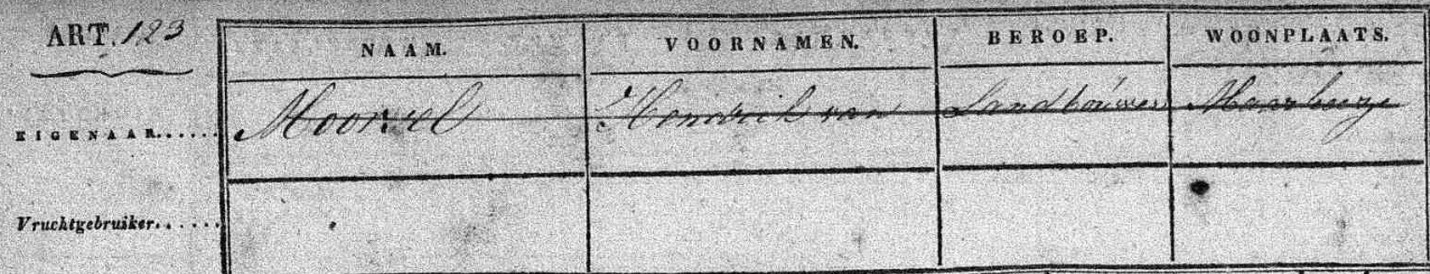 ART. 123
NAAM. VOORNAMEN. BEROEP. WOONPLAATS.
EIGENAAR...... Moorsel Hendrik van Landbouwer Maarheeze
Vruchtgebruiker......